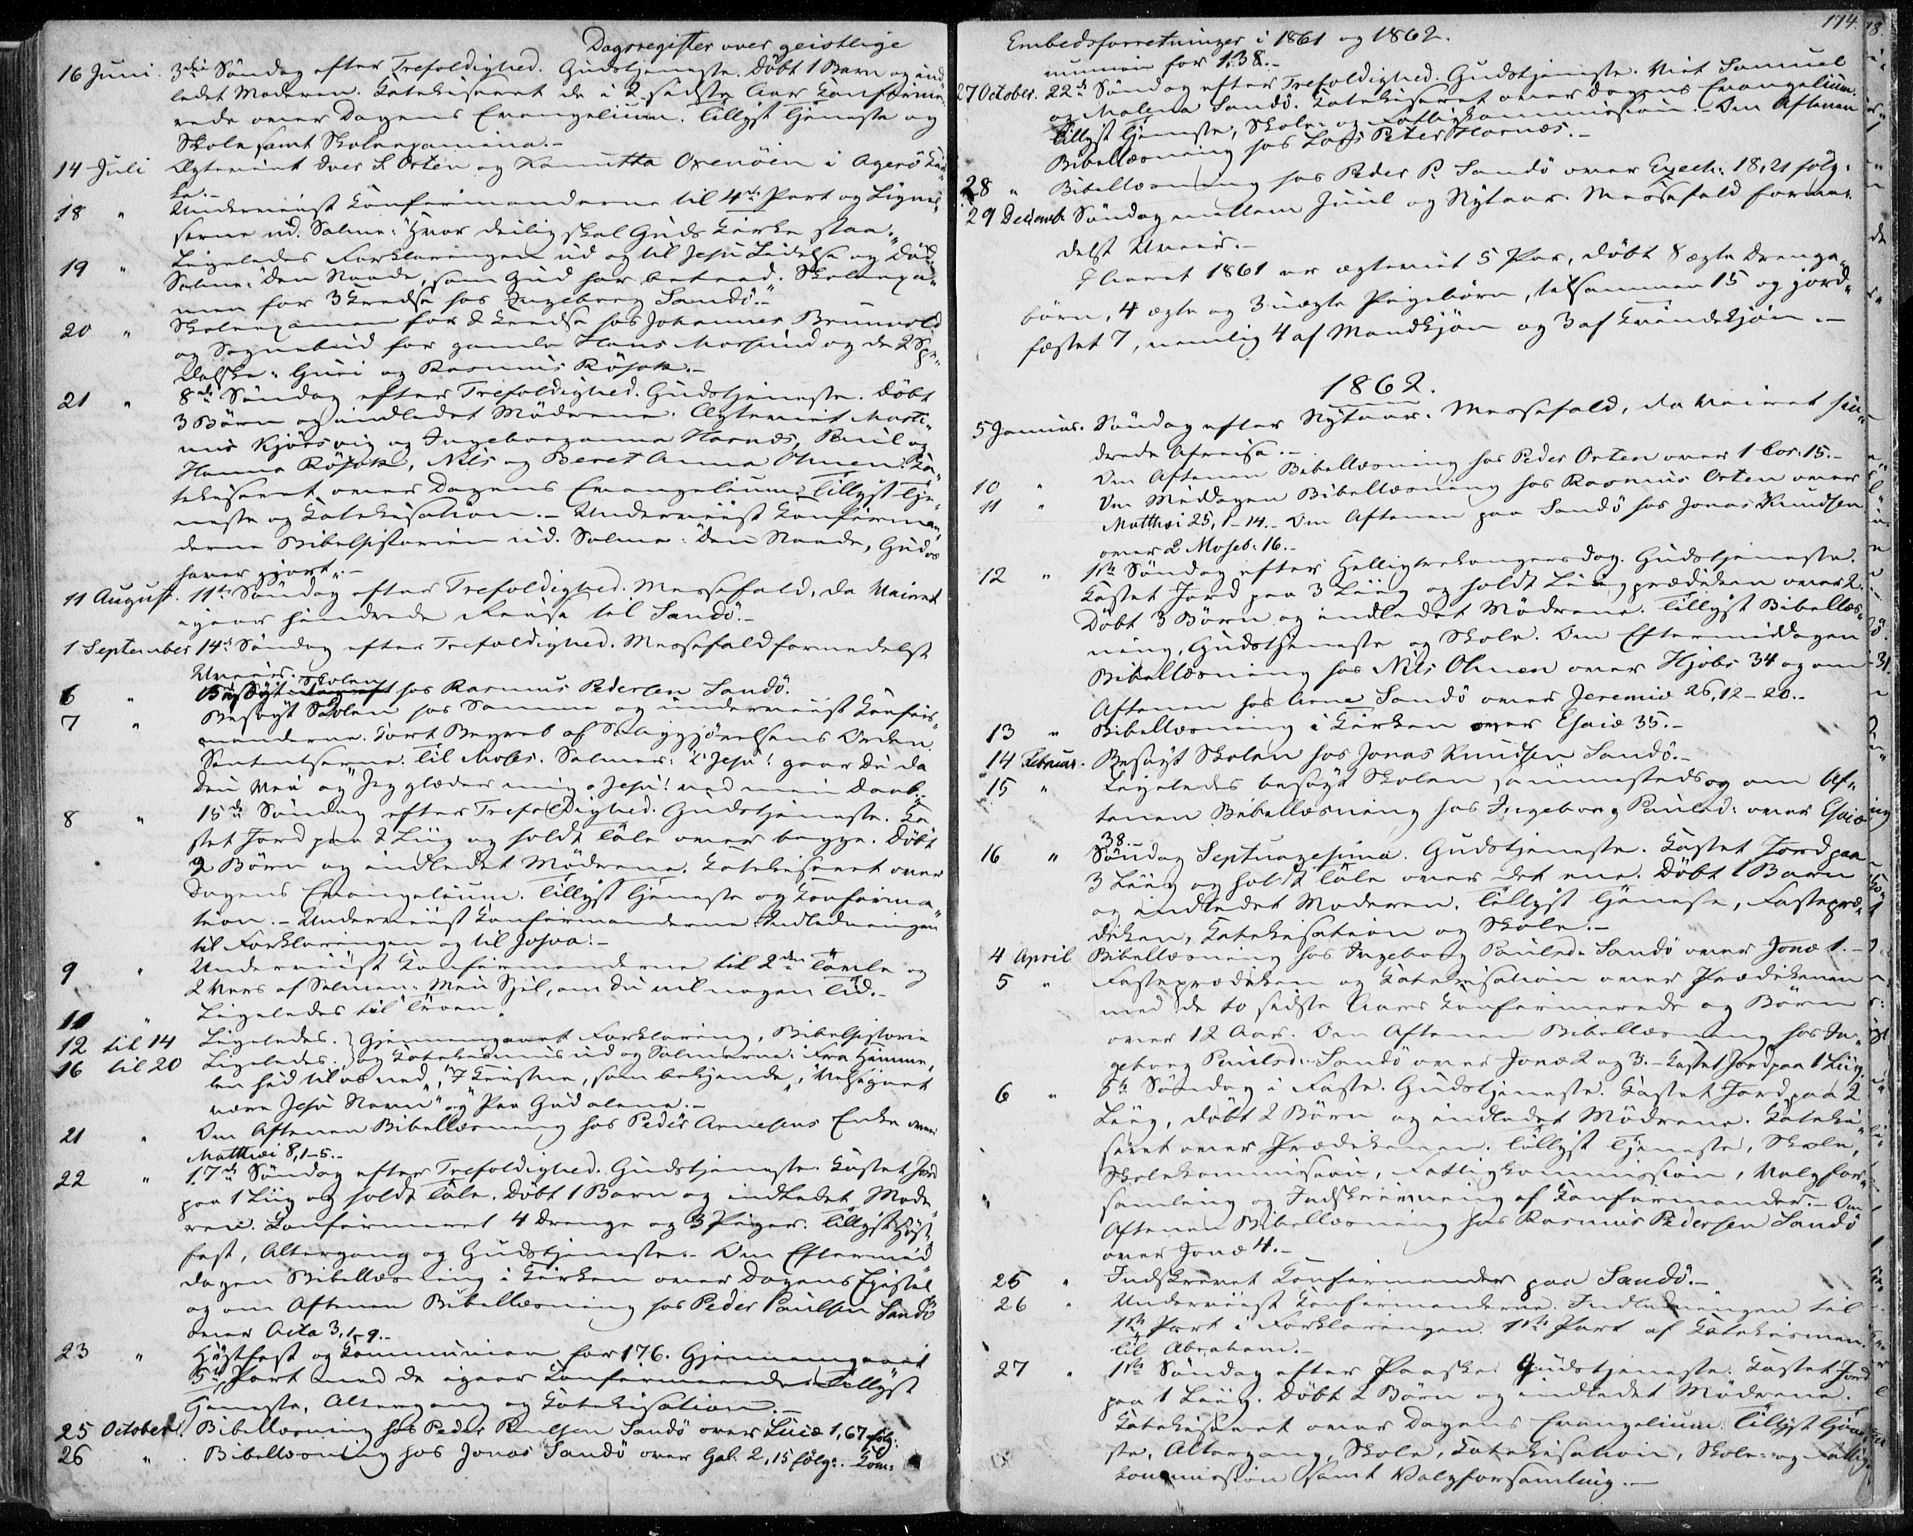 Dagsregister over geistlige
16 Juni. 3die Søndag efter Trefoldighed. Gudstjeneste. Døbt 1 Barn og ind-
ledet Moderen. Catekiseret de i 2 sidste Aar Confirme-
rede over Dagens Evangelium. Tillyst Tjeneste og
Skole samt Skoleexamina.-
14 Juli Ægteviet Iver L. Orten og Kanutta Oxenöien i Agerö Kir-
ke.-
18 " Underviist Confirmanderne til 4de Part og Lignel-
serne ud. Salme: "Hvor deilig skal Guds Kirke staa."
19 " Ligeledes Forklaringen ud og til Jesu Lidelse og Död.
Salme: Den Naade, som Gud har beteed. Skoleexa-
men for 3 Kreds hos Ingeborg Sandö.-
20 " Skoleexamen for 2 Kreds hos Johannes Brunvold
og Sognebud for gamle Hans Morsund og de 2 Spe-
dalske: Guri og Rasmus Rösok.-
21 " 8de Søndag efter Trefoldighed. Gudstjeneste. Döbt
3 Börn og indledet Mödrene. Ægteviet Marti-
nus Kjörsvig og Ingeboranna Harnes, Paul og
Hanna Rösok, Nils og Beret Anna Ohnen. Ca-
tekiseret over Dagens Evangelium. Tillyst Tje-
neste og Catekisation.- Underviist Confirman-
derne Bibelhistorien ud. Salme: Den Naade, Gud os
haver gjort".-
11 August. 11te Søndag efter Trefoldighed. Messefald, da Veiret
igaar hindrede Reise til Sandö.-
1 September 14de Søndag efter Trefoldighed. Messefald formedelst
Uveir.-
6 " Besögt Skolen hos Rasmus Pedersen Sandö.
7 " Besögt Skolen hos Samme og underviist Confir-
manderne. Kort Begreb af Saliggjörelsens Orden.
Sententserne. Til Moses. Salmer: "O Jesu! gaar du da
din Vei" og "Jeg glæder mig o Jesu! ved min Daab".-
8 " 15de Søndag efter Trefoldighed. Gudstjeneste. Ka-
stet Jord paa 2 Liig og holdt Tale over begge. Döbt
2 Börn og indledet Mödrene. Catekiseret over
Dagens Evangelium. Tillyst Tjeneste og Confirma-
tion.- Underviist Confirmanderne Indledningen
til Forklaringen og til Josva.-
9 " Underviist Confirmanderne til 2den Tavle og
2 Vers af Salmen: Min Sjel, om du vil nogen Tid.-
10 " Ligeledes til Troen.
12 til 14 Ligeledes. } Gjennemgaaet Forklaring, Bibelhistorie
16 til 20 Ligeledes. } og Catekismus ud og Salmerne: Fra Himme-
len hid til os ned", "I Kristne, som bekjende", "Velsignet
være Jesu Navn" og "Paa Gud alene".-
21 " Om Aftenen Bibellæsning hos Peder Arnesens Enke over
Matthæi 8,1-5.-
22 " 17de Søndag efter Trefoldighed. Gudstjeneste. Kastet Jord
paa 1 Liig og holdt Tale. Döbt 1 Barn og indledet Mode-
ren. Confirmeret 4 Drenge og 3 Piger. Tillyst Höst-
fest, Altergang og Gudstjeneste.- Om Eftermid-
dagen Bibellæsning i Kirken over Dagens Epistel
og om Aftenen Bibellæsning hos Peder Paulsen Sandö
over Acta 3,1-9.-
23 " Höstfest og Communion for 176. Gjennemgaaet
5te Part med de igaar Confirmerede. Tillyst
Tjeneste, Altergang og Catekisation.-
25 October. Bibellæsning hos Peder Paulsen Sandö over Lucæ 1,67 fölg:
26 " Bibellæsning hos Jonas Sandö over Gal. 2,15 fölg:. Com-
174.
Embedsforretninger i 1861 og 1862.
munion for 138.-
27 October. 22de Søndag efter Trefoldighed. Gudstjeneste. Viet Samuel
og Malena Sandö. Catekiseret over Dagens Evangelium.
Tillyst Tjeneste, Skole- og Fattigkommission.- Om Aftenen
Bibellæsning hos Lars Peter Harnæs.-
28 " Bibellæsning hos Peder P. Sandö over Ezech: 18,21 fölg:
29 Decemb. Söndag mellem Juul og Nytaar. Messefald forme-
delst Uveir.-
I Aaret 1861 er ægteviet 5 Par, döbt 8 ægte Drenge-
börn, 4 ægte og 3 uægte Pigebörn, tilsammen 15 og jord-
fæstet 7, nemlig 4 af Mandkjön og 3 af Kvindekjön.-
1862.
5 Januar. Söndag efter Nytaar. Messefald, da Veiret hin-
drede Afreise.-
10 " Om Aftenen Bibellæsning hos Peder Orten over 1 Cor: 15.-
11 " Om Middagen Bibellæsning hos Rasmus Orten over
Matthæi 25,1-14.- Om Aftenen paa Sandö hos Jonas Knudsen
over 2 Moseb: 16.-
12 " 1ste Söndag efter Helligtrekongersdag. Gudstjeneste.
Kastet Jord paa 3 Liig og holdt Liigprædiken over 2.
Döbt 3 Börn og indledet Mödrene. Tillyst Bibellæs-
ning, Gudstjeneste og Skole. Om Eftermiddagen
Bibellæsning hos Nils Ohnen over Hjobs 34 og om
Aftenen hos Arne Sandö over Jeremiæ 26,12-20.-
13 " Bibellæsning i Kirken over Esaiæ 35.-
14 Februar. Besögt Skolen hos Jonas Knudsen Sandö.-
15 " Ligeledes besögt Skolen sammesteds og om Af-
tenen Bibellæsning hos Ingeborg Paulsd: over Esaiæ
38.-
16 " Söndag Septuagesima. Gudstjeneste. Kastet Jord paa
3 Liig og holdt Tale over det ene. Döbt 1 Barn
og indledet Moderen. Tillyst Tjeneste, Fastepræ-
diken, Catekisation og Skole.-
4 April Bibellæsning hos Ingeborg Paulsd: Sandö over Jonæ 1.-
5 " Fasteprædiken og Catekisation over Prædikenen
med de to sidste Aars Confirmerede og Börn
over 12 Aar. Om Aftenen Bibellæsning hos In-
geborg Paulsd: Sandö over Jonæ 2 og 3.- Kastet Jord paa 1 Liig.
6 " 5te Söndag i Faste. Gudstjeneste. Kastet Jord paa 2
Liig, döbt 2 Börn og indledet Mödrene. Cateki-
seret over Prædikenen. Tillyst Tjeneste, Skole,
Skolekommission, Fattigkommission, Valgfor-
samling og Indskrivning af Confirmander.- Om
Aftenen Bibellæsning hos Rasmus Pedersen Sandö
over Jonæ 4.-
25 " Indskrevet Confirmander paa Sandö.-
26 " Underviist Confirmanderne. Indledningen til
1ste Part i Forklaringen. 1ste Part af Catekismen.
Til Abraham.-
27 " 1ste Söndag efter Paaske. Gudstjeneste. Kastet Jord
paa 1 Liig. Döbt 2 Börn og indledet Mödrene.
Catekiseret over Dagens Evangelium. Tillyst Tjene-
ste, Altergang, Skole, Catekisation, Skole- og Fattig-
kommission samt Valgforsamling.-